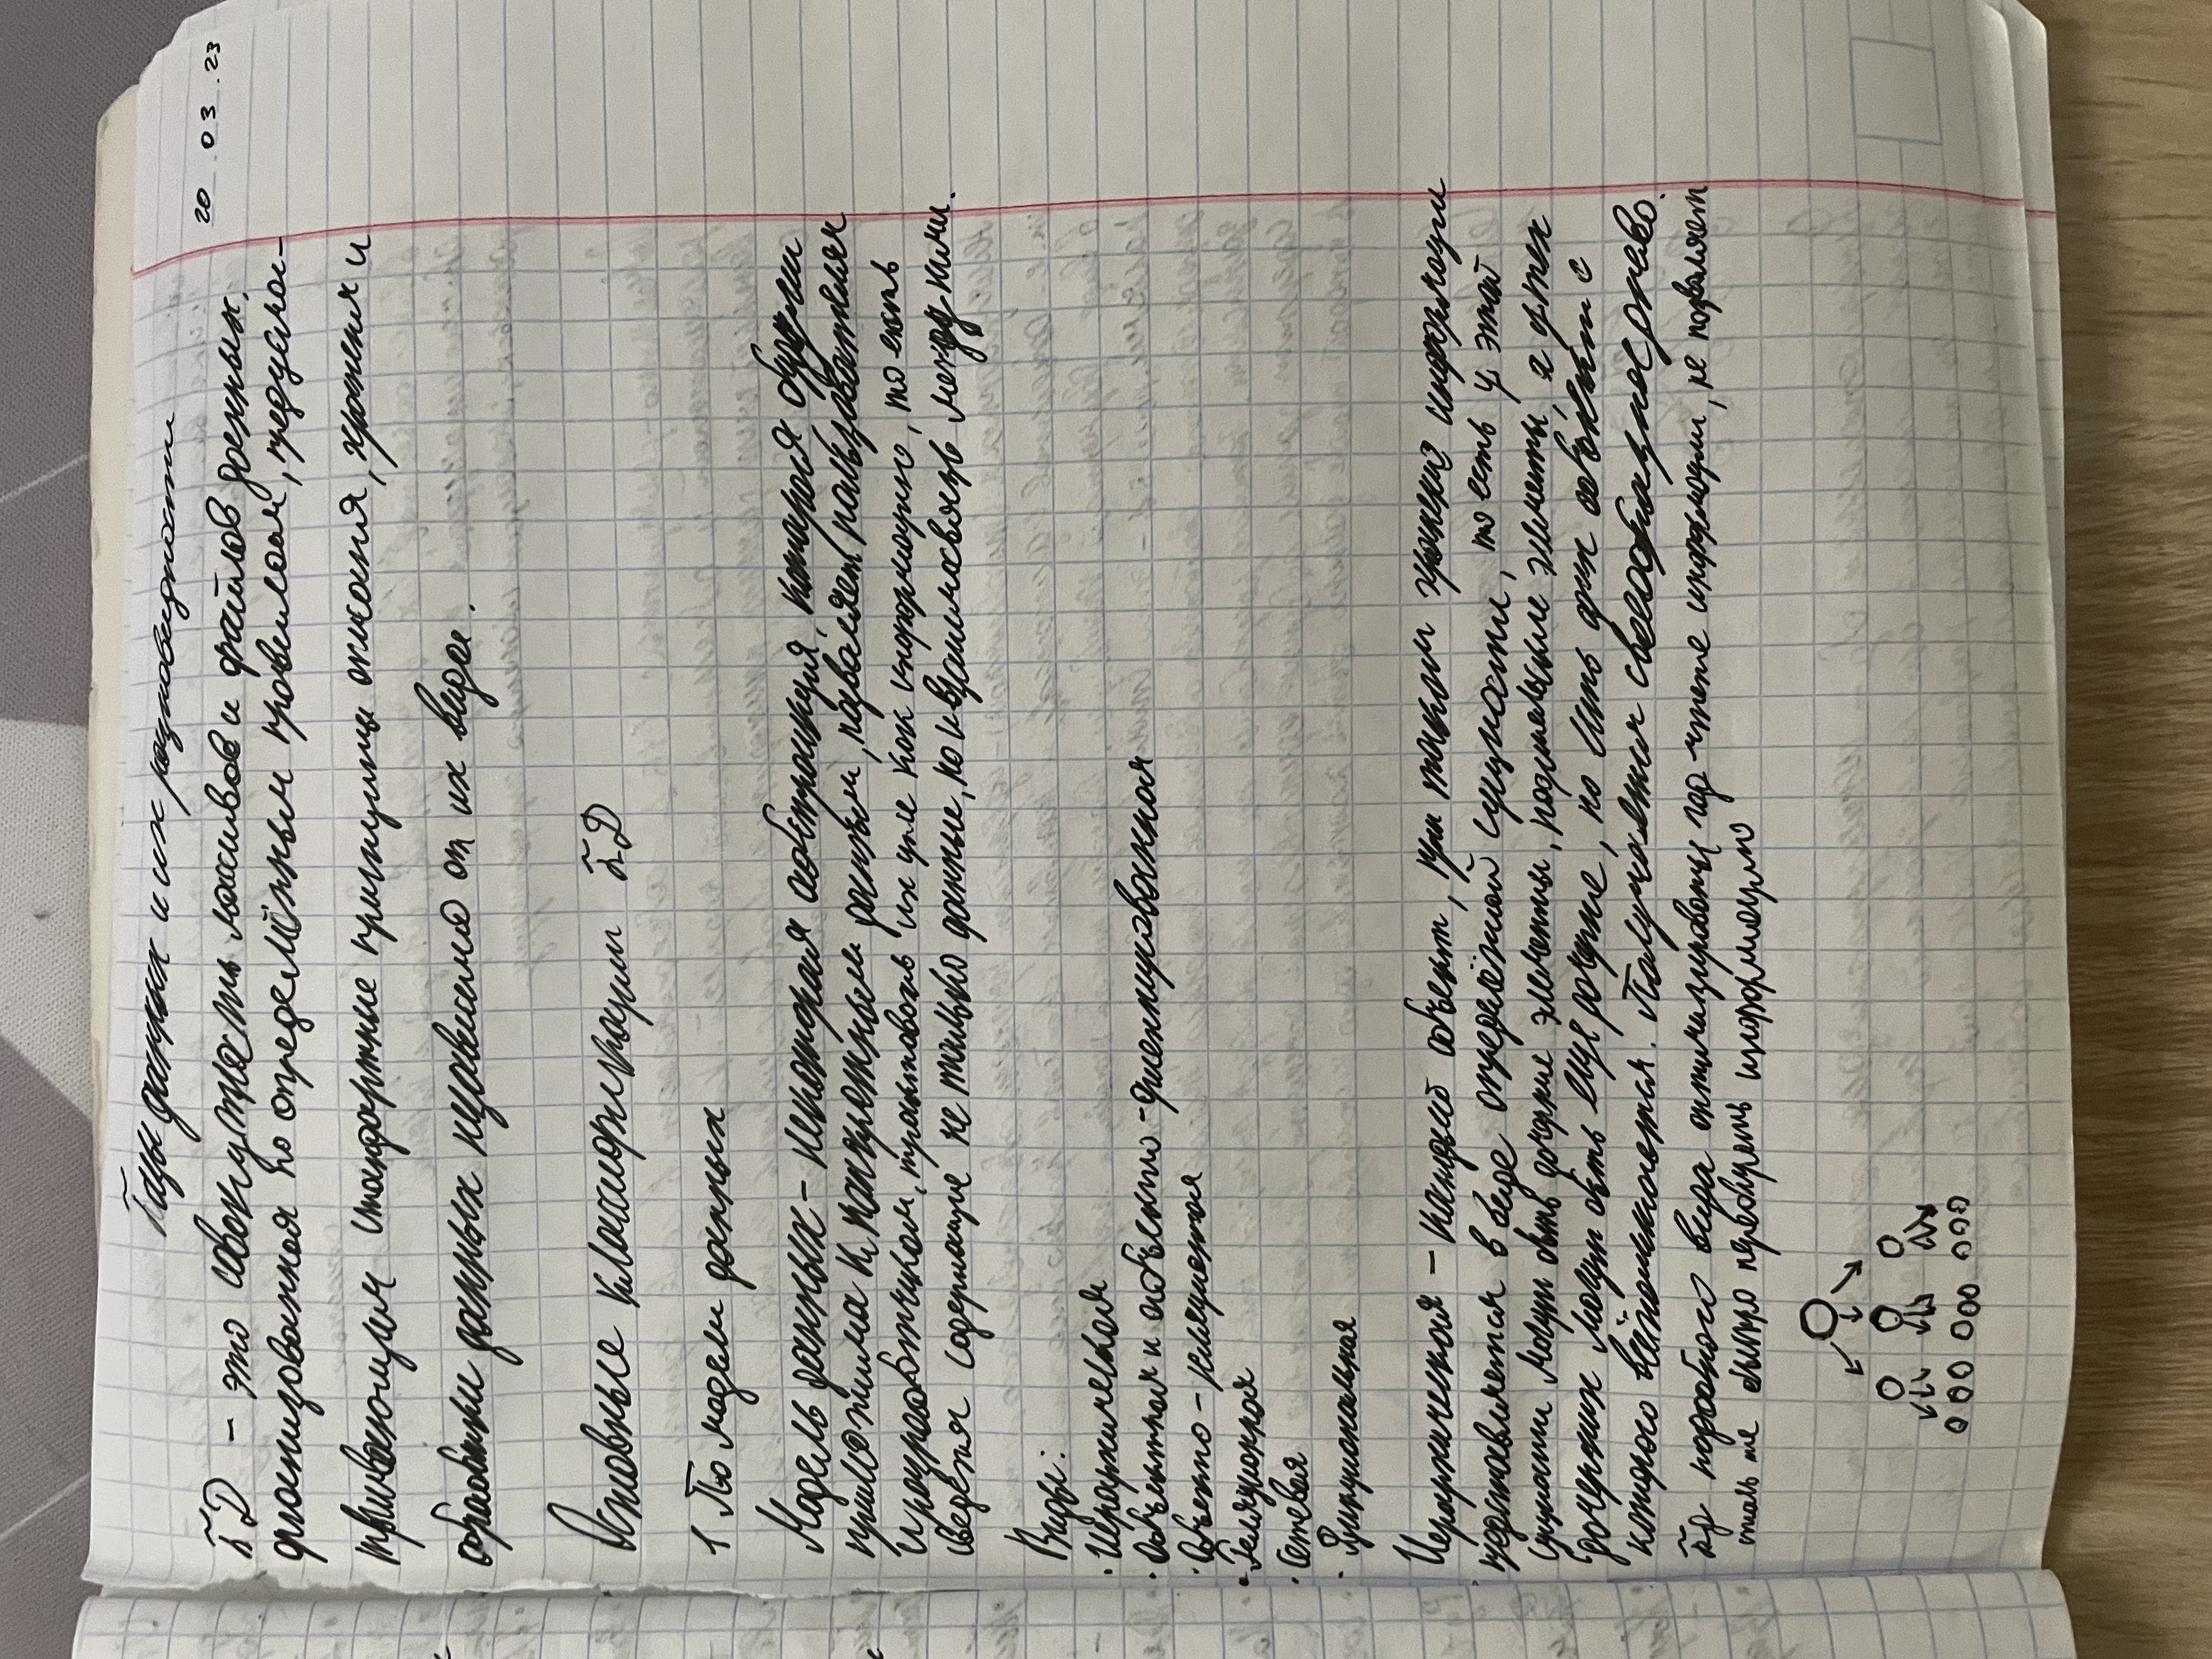 Базы данных и их разновидности
20 03.23
БД - это совокупность массивов и файлов данных,
организованная по определённым правилам, предусма-
тривающим стандартные принципы описаня, хранения и
обработки данных независимо от их вида.
Основные классификации БД
1 По модели данных
Модель данных - некоторая абстракция, которая, будучи
приложима к конкретным данным, позволяет пользователям
и разработчикам, трактовать их уже как информацию, то есть
сведения содержащие не только данные, но и взаимосвязь между ними.
Виды:
· Иерархическая
· Объектная и объектно-ориентированная
· Объектно - реляционная
· Реляционная
· Сетевая
· Функциональная
Иерархическая - каждый объект, при таком хранение информации
представляется в виде определённой сущности, то есть у этой
сущности могут быть дочерние элементы, родительские элементы, а у тех
дочерних могут быть еще дочерние, но есть один объект с
которого всё начинается. Получается своеобразное дерево.
БД подобного вида оптимизированы под чтение информации, не позволяет
столь же быстро перебирать информацию